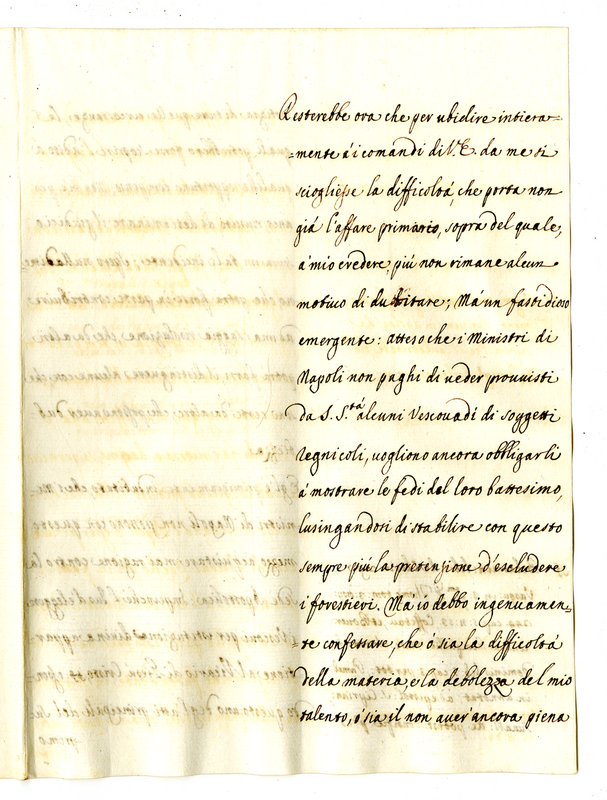 Resterebbe ora che per ubidire intiera=
=mente à i comandi di V.E. da me si
sciogliesse la difficoltà, che porta non
già l'affare primario, sopra del quale,
à mio credere, più non rimane alcun
motivo di dubitare; Mà un fastidioso
emergente: atteso che i Ministri di
Napoli non paghi di veder provvisti
da S. S.tà alcuni Vescovadi di soggetti
regnicoli, vogliono ancora obbligarli
à mostrare le fedi del loro battesimo,
lusingandosi di stabilire con questo
sempre più la pretenzione d'escludere
i forestieri. Mà io debbo ingenuamen=
=te confessare, che ò sia la difficoltà
della materia e la debolezza del mio
talento, ò sia il non aver'ancora piena